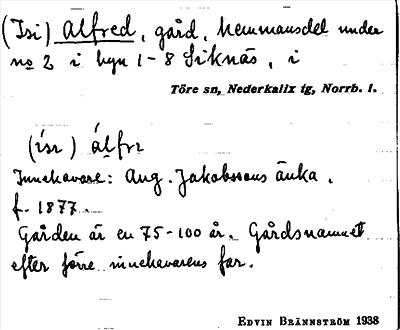 (Isi) Alfred, gård, hemmansdel under
no 2 i byn 1-8 Siknäs, i
Töre sn, Nederkalix tg, Norrb. l.
(ísı) álfrı
Innehavare: Aug. Jakobssons änka.
f. 1877.
Gården är en 75-100 år. Gårdsnamnet
efter förre innehavarens far.
EDVIN BRÄNNSTRÖM 1938